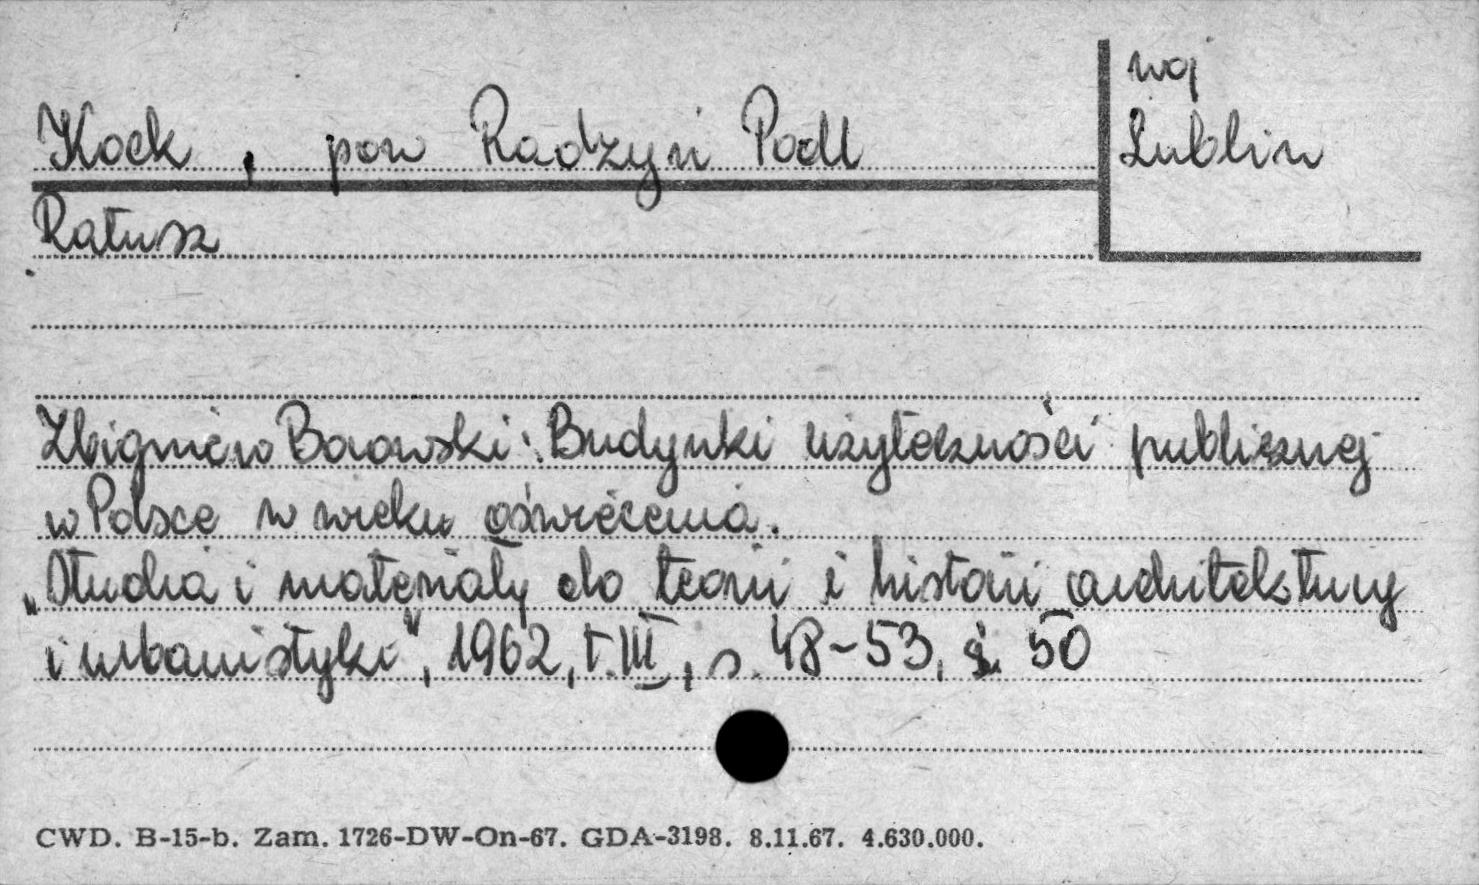 woj
Kock, pow Radzyń Podl
Lublin
Ratusz
Zbigniew Borowski: Budynki użyteczności publicznej
w Polsce w wieku oświecenia.
"Studia i materiały do teorii i historii architektury
i urbanistyki", 1962, t. III, s. 48-53, 50
CWD. B-15-b. Zam. 1726-DW-On-67. GDA-3198. 8.11.67. 4.630.000.